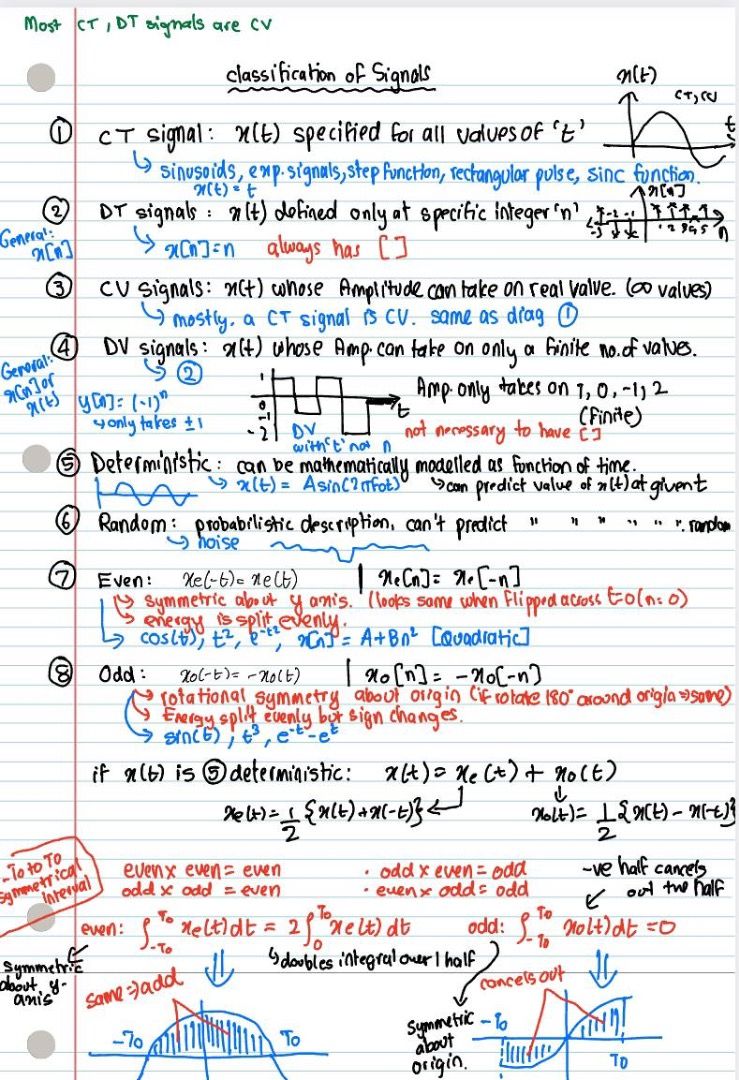 Most CT, DT signals are CV
classification of Signals
x(t)
CT, CV
t
① CT signal: x(t) specified for all values of 't'
↳ sinusoids, exp. signals, step function, rectangular pulse, sinc function.
x(t) = t
x[n]
② DT signals: x(t) defined only at specific integer 'n'
-3 -2 -1 1 2 3 4 5 n
General: x[n]
↳ x[n] = n always has []
③ CV signals: x(t) whose Amplitude can take on real value. (∞ values)
↳ mostly, a CT signal is CV. same as diag ①
④ DV signals: x(t) whose Amp. can take on only a finite no. of values.
↳ ②
General: x[n] or x(t)
y[n] = (-1)ⁿ
↳ only takes ±1
1
0
-1
-2
t
DV with 't' not n
Amp. only takes on 1, 0, -1, 2
(Finite)
not necessary to have []
⑤ Deterministic: can be mathematically modelled as function of time.
↳ x(t) = A sin(2πfot) ↳ can predict value of x(t) at given t
⑥ Random: probabilistic description, can't predict " " " " " ". random
↳ noise
⑦ Even: xe(-t) = xe(t) | xe[n] = xe[-n]
↳ symmetric about y axis. (looks same when flipped across t=0 (n=0)
↳ energy is split evenly.
↳ cos(t), t², e^-t², x[n] = A+Bn² [Quadratic]
⑧ Odd: xo(-t) = -xo(t) | xo[n] = -xo[-n]
↳ rotational symmetry about origin (if rotate 180° around origin ⇒ same)
↳ Energy split evenly but sign changes.
↳ sin(t), t³, e^-t - e^t
if x(t) is ⑤ deterministic: x(t) = xe(t) + xo(t)
xe(t) = 1/2 {x(t) + x(-t)} xo(t) = 1/2 {x(t) - x(-t)}
-To to To
Symmetrical
Interval
even x even = even · odd x even = odd
odd x odd = even · even x odd = odd
-ve half cancels
out the half
even: ∫_-To^To xe(t)dt = 2∫_0^To xe(t)dt odd: ∫_-To^To xo(t)dt = 0
↳ doubles integral over 1 half
Symmetric
about y-
axis
same ⇒ add
cancels out
-To To
Symmetric
about
origin.
-To To